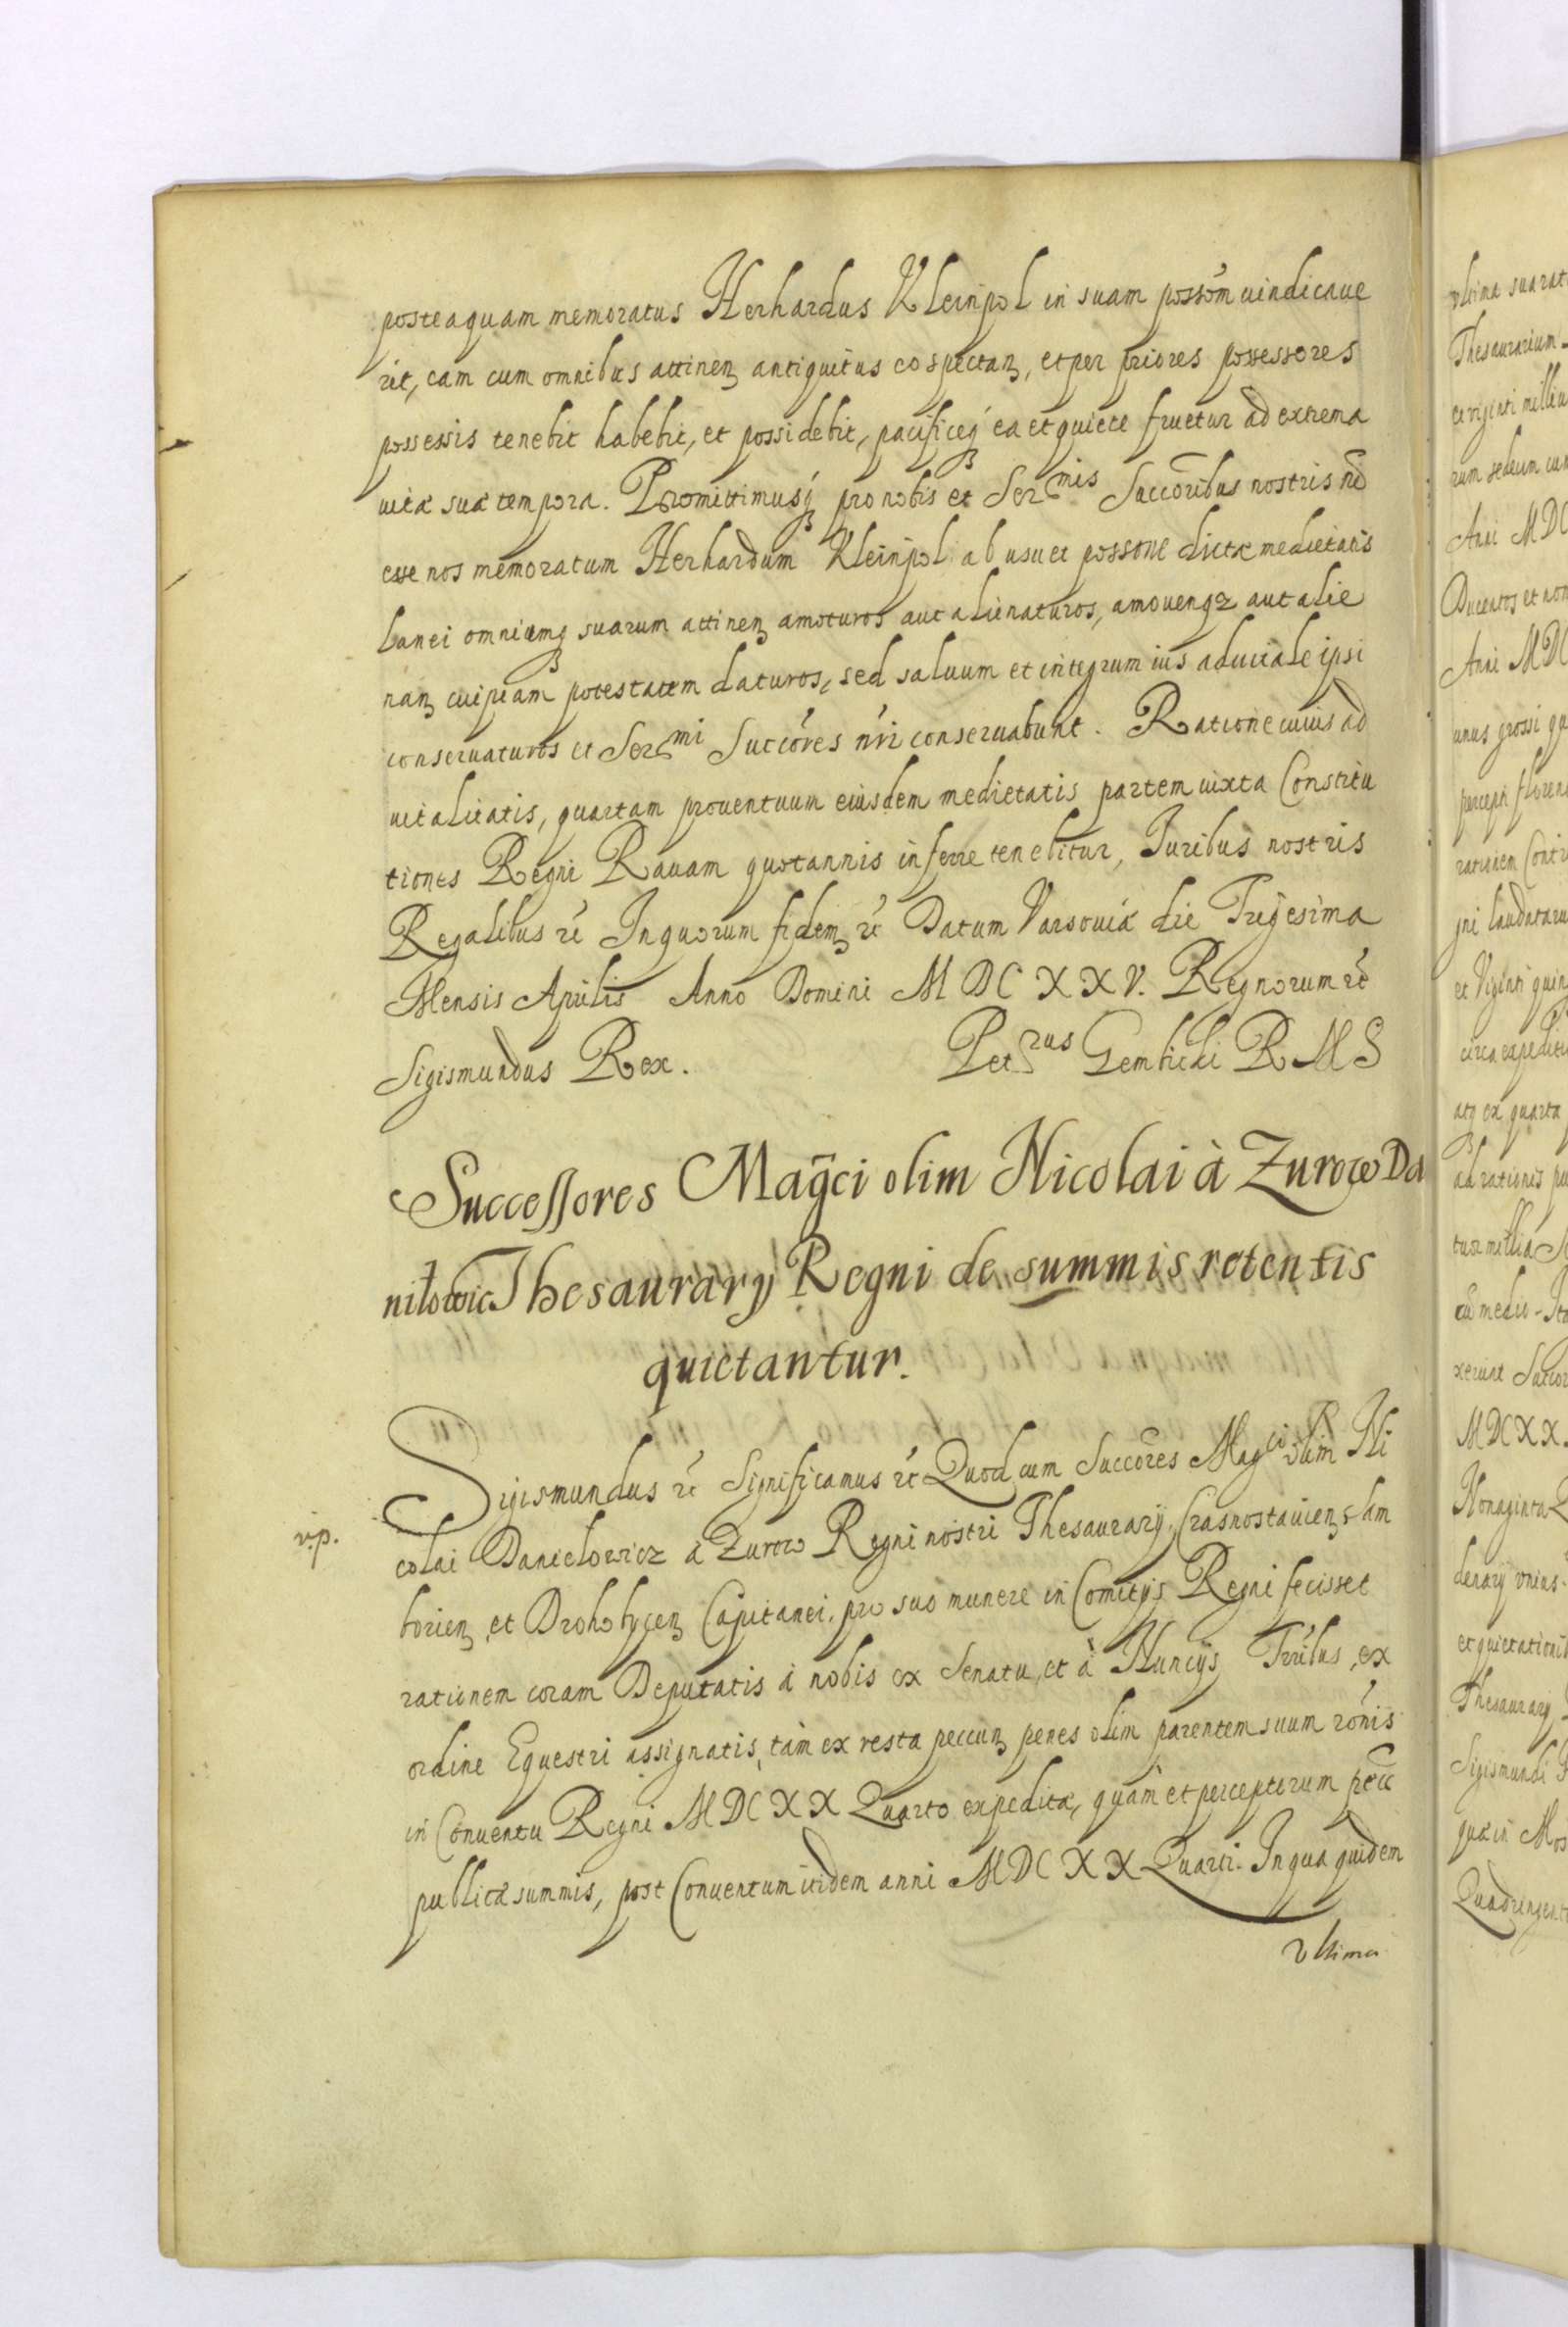 posteaquam memoratus Herhardus Kleinpol in suam possõm uindicaue
rit, eam cum omnibus attinen̨ antiquitus eo spectan̨, et per priores possessores
possessis tenebit habebit, et possidebit, pacificeq́ ea et quiete fruetur ad extrema
uitæ suæ tempora. Promittimusq́ pro nobis et Sermis Succoribus nostris nõ
esse nos memoratum Herhardum Kleinpol ab usu et possone dictæ medietatis
lanei omniumq suarum attinen̨ amoturos aut alienaturos, amouenqz aut alie
nan̨ cuipiam potestatem daturos, sed saluum et integrum ius aduitale ipsi
conseruaturos et Sermi Succóres nŕi conseruabunt. Ratione cuius ad
uitalitatis, quartam prouentuum eiusdem medietatis partem iuxta Constitu
tiones Regni Rauam quotannis inferre tenebitur, Iuribus nostris
Regalibus rć In quorum fidem rć Datum Varsouiæ die Trigesima
Mensis Aprilis Anno Domini MDCXXV. Regnorum rć
Sigismundus Rex. Petrus Gembicki R M S
Successores Mag̃ci olim Nicolai à Zurow Da
niłowic Thesaurarÿ Regni de summis retentis
quictantur.
Sigismundus rć Significamus rć Quod cum Succores Magci olim Ni
v.p.
colai Danielowicz à Zurow Regni nostri Thesaurarÿ, Crasnostauien̨ Sam
borien̨, et Drohobycen̨ Capitanei, pro suo munere in Comitÿs Regni fecisset
rationem coram Deputatis à nobis ex Senatu, et à Nuncÿs Tribus, ex
ordine Equestri assignatis, tàm ex resta peccun̨ penes olim parentem suum rónis
in Conuentu Regni MDCXX Quarto expeditæ, quàm et perceptorum pecc
publicæ summis, post Conuentum itidem anni MDCXX Quarti. In qua quidem
vltima